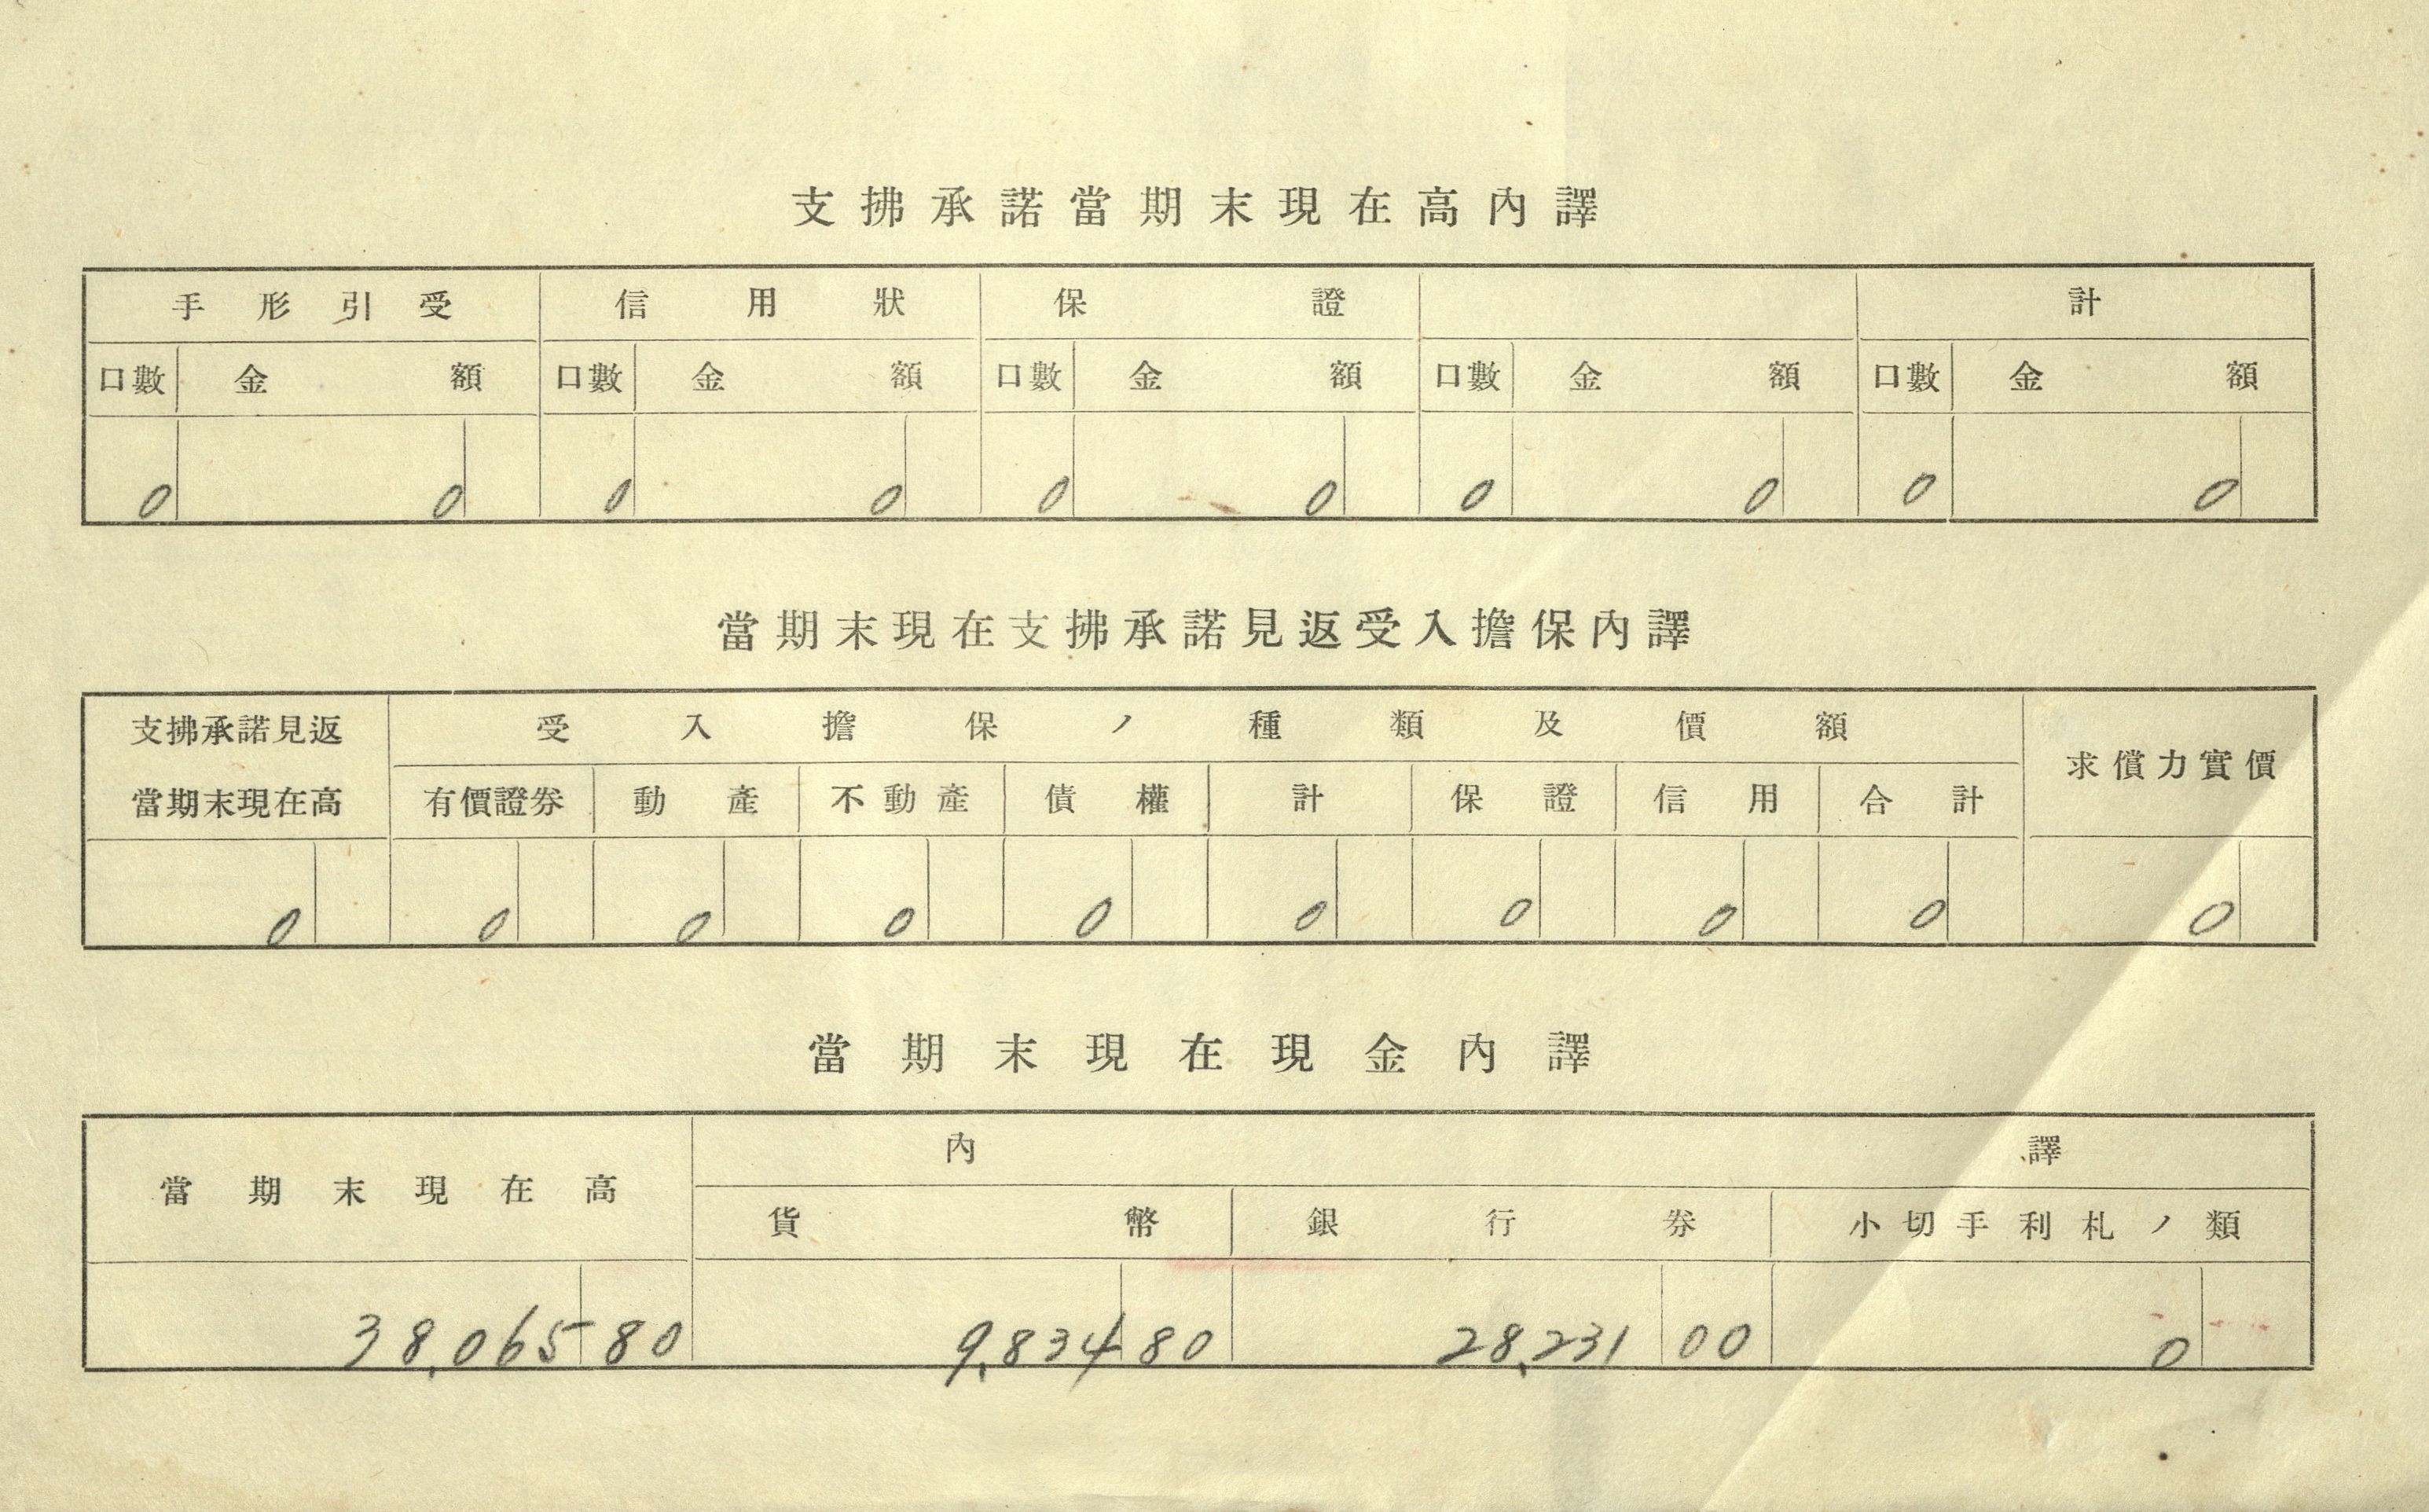 支拂承諾當期末現在高內譯
手形引受 信用狀 保證 計
口數 金額 口數 金額 口數 金額 口數 金額 口數 金額
0 0 0 0 0 0 0 0 0 0
當期末現在支拂承諾見返受入擔保內譯
支拂承諾見返 受入擔保ノ種類及價額 求償力實價
當期末現在高 有價證券 動產 不動產 債權 計 保證 信用 合計
0 0 0 0 0 0 0 0 0 0
當期末現在現金內譯
當期末現在高 內譯
貨幣 銀行券 小切手利札ノ類
38,065 80 9,834 80 28,231 00 0